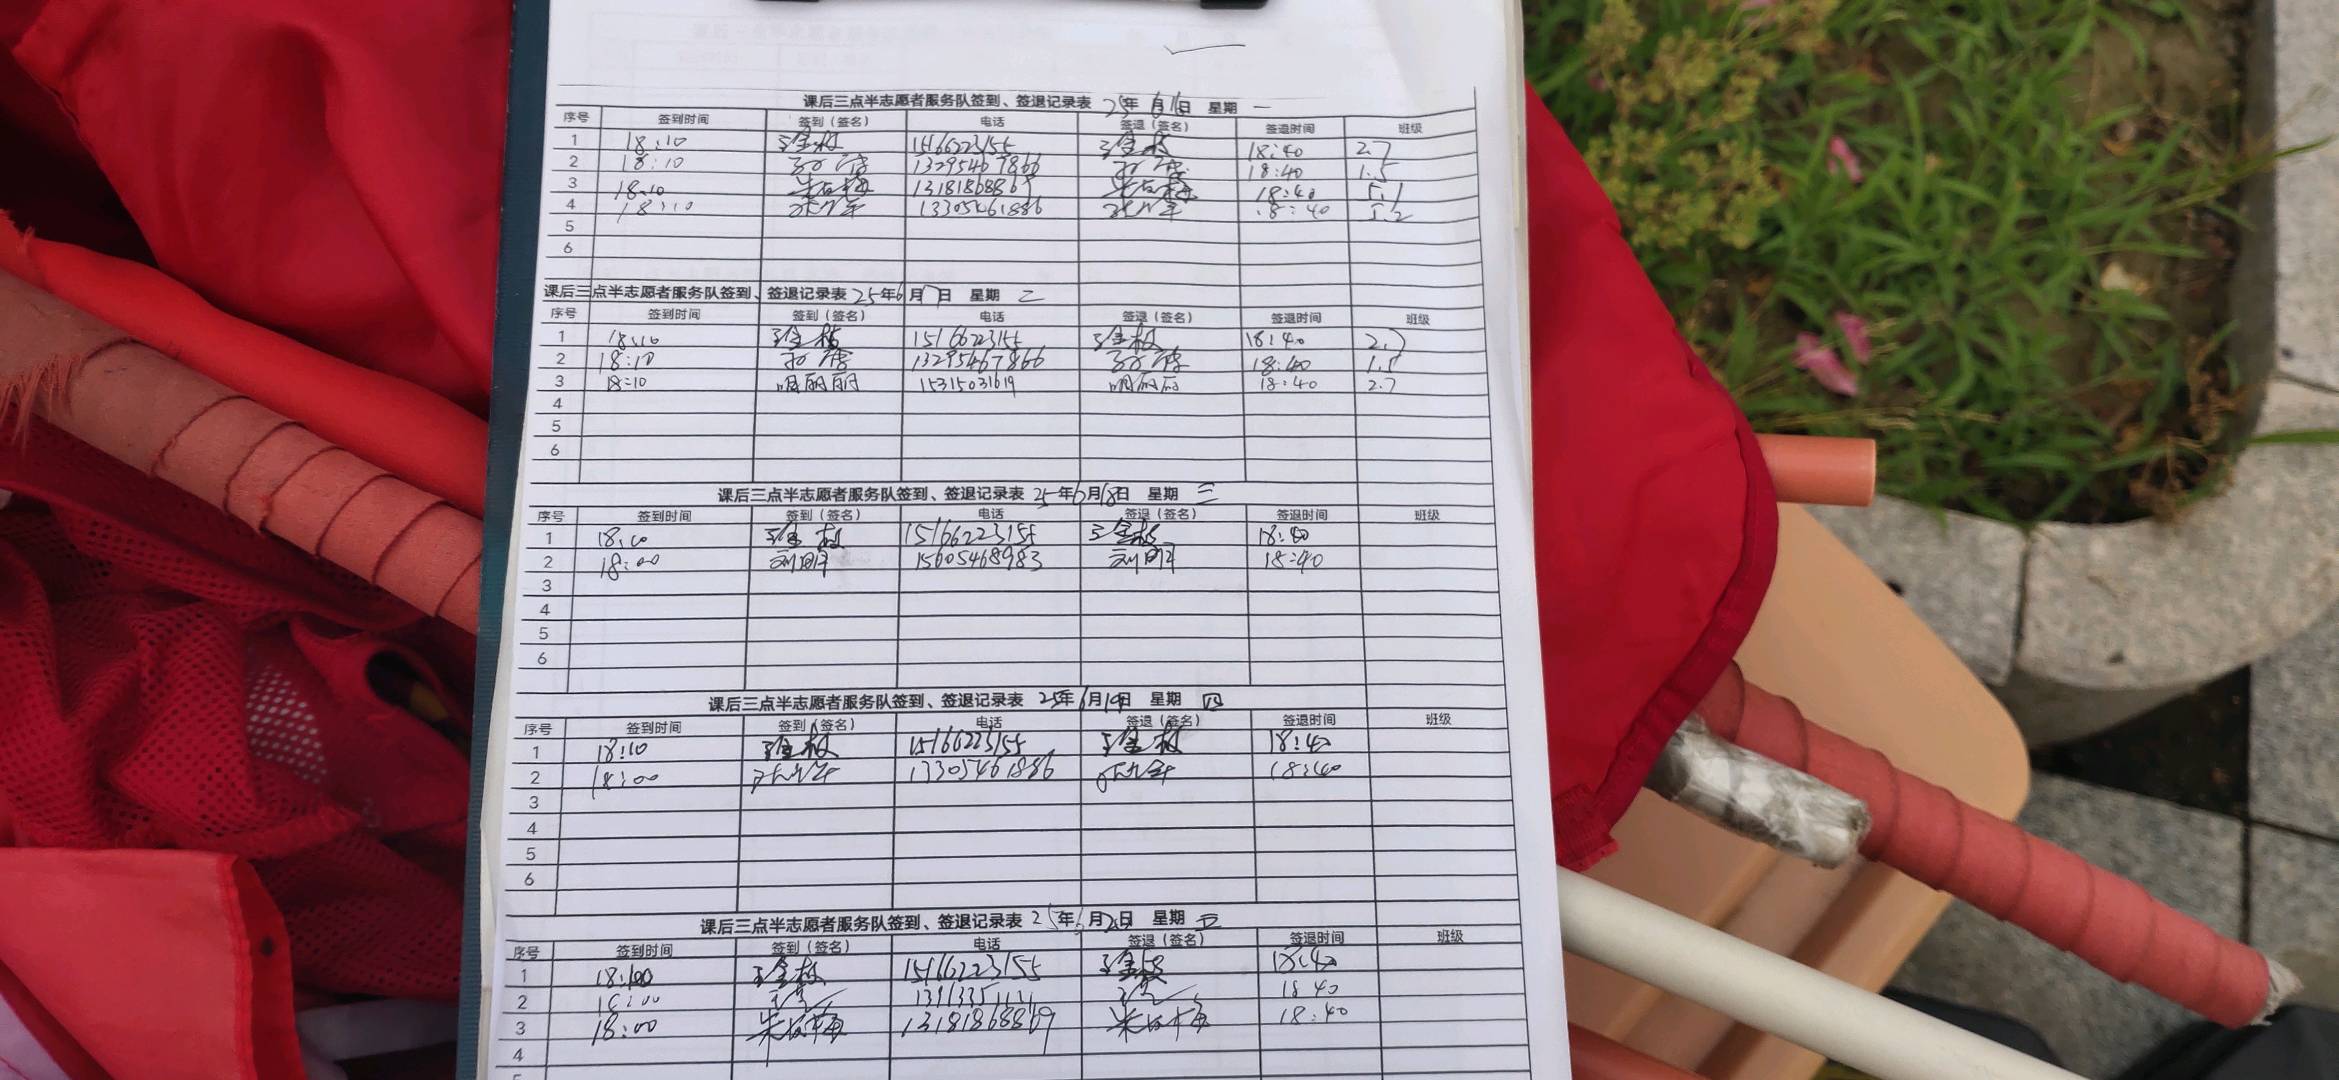 课后三点半志愿者服务队签到、签退记录表 25年6月16日 星期 一
序号 签到时间 签到（签名） 电话 签退（签名） 签退时间 班级
1 18:10 15166223155 18:40 2.7
2 18:10 13295467866 18:40 1.5
3 18:10 朱石梅 13181868869 朱石梅 18:40 5.1
4 18:10 13305461886 18:40 5.2
5
6
课后三点半志愿者服务队签到、签退记录表 25年6月17日 星期 二
序号 签到时间 签到（签名） 电话 签退（签名） 签退时间 班级
1 18:10 15166223155 18:40 2.7
2 18:10 13295467866 18:40 1.5
3 18:10 明丽丽 15315031619 明丽丽 18:40 2.7
4
5
6
课后三点半志愿者服务队签到、签退记录表 25年6月18日 星期 三
序号 签到时间 签到（签名） 电话 签退（签名） 签退时间 班级
1 15166223155 18:40
2 18:00 刘明 15605468983 刘明 18:40
3
4
5
6
课后三点半志愿者服务队签到、签退记录表 25年6月19日 星期 四
序号 签到时间 签到（签名） 电话 签退（签名） 签退时间 班级
1 18:10 15166223155 18:40
2 18:00 13305461886 18:40
3
4
5
6
课后三点半志愿者服务队签到、签退记录表 25年6月20日 星期 五
序号 签到时间 签到（签名） 电话 签退（签名） 签退时间 班级
1 18:00 15166223155 18:40
2 18:00 18 40
3 18:00 朱石梅 13181868869 朱石梅 18:40
4